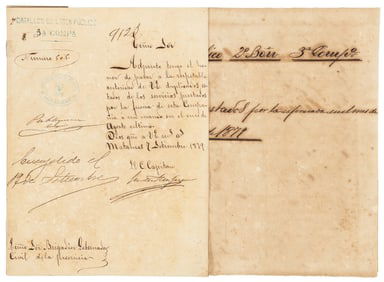 BATALLON DE ORDEN PUBLICO
3ª COMPª
912
Número 505
Ecmo Sor
Adjunto tengo el ho-
nor de pasar a la respetable
autoridad de VE duplicado es-
tado de los servicios prestados
por la fuerza de esta Compañia
a mi mando en el mes de
Agosto ultimo.
Dios gue a VE ms as
Matanzas 2 Setiembre 1879
El C. Capitan
Cumplido el
de Setiembre
Ecmo Sor Brigadier Gobernador
Civil de la provincia
2º Bón 3ª Compª
por la espresada en el mes de
de 1879